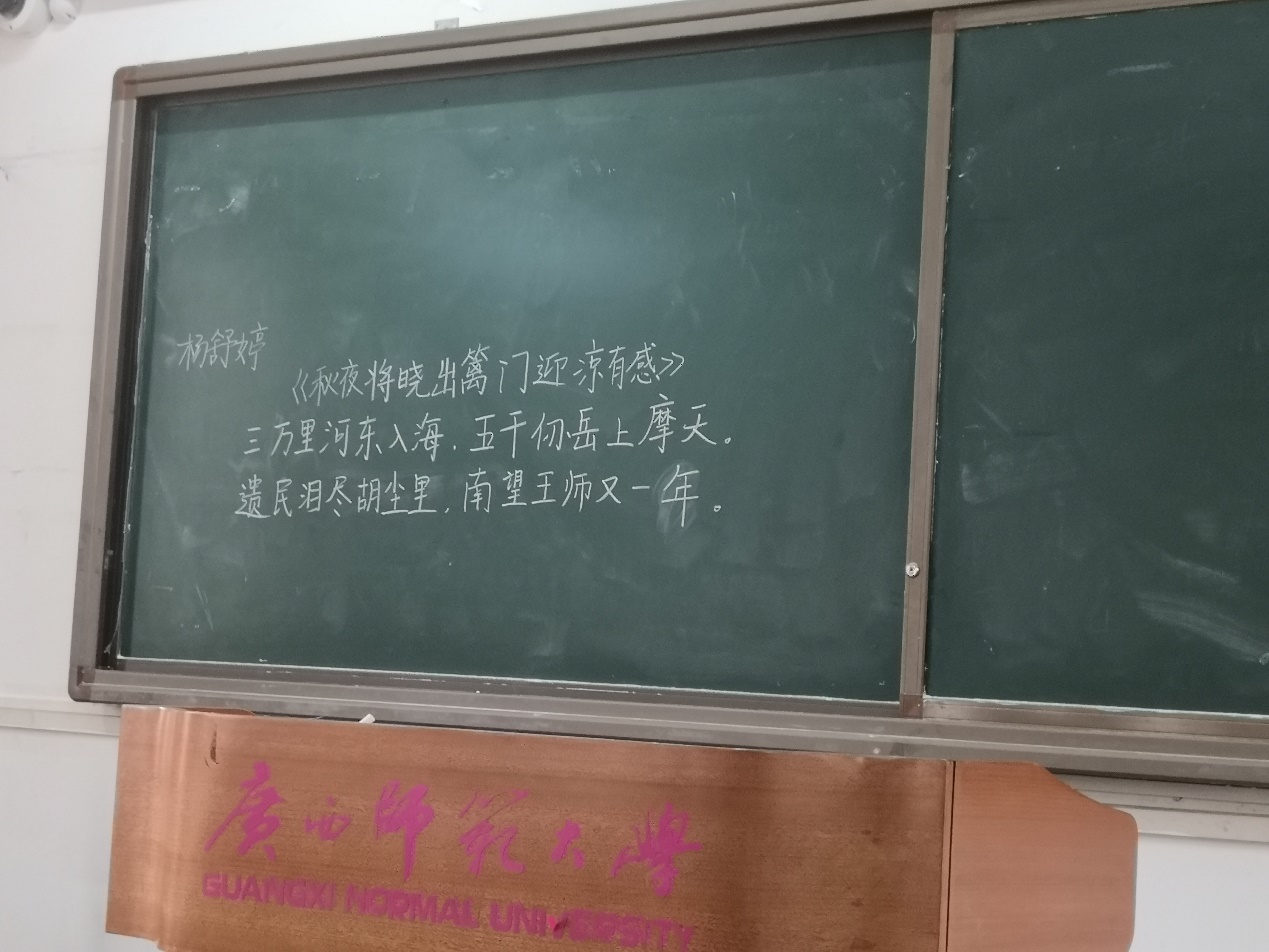 杨舒婷
《秋夜将晓出篱门迎凉有感》
三万里河东入海，五千仞岳上摩天。
遗民泪尽胡尘里，南望王师又一年。
廣西師範大學
GUANGXI NORMAL UNIVERSITY